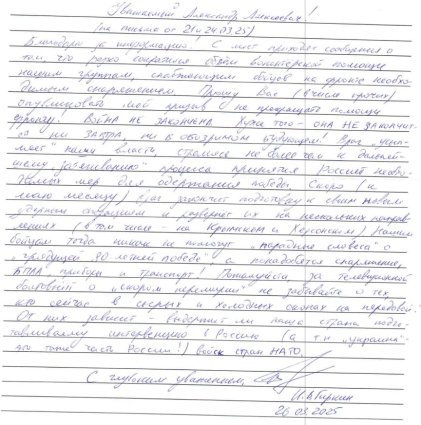 Уважаемый Александр Алексеевич!
(на письма от 21 и 24.03.25)
Благодарю за информацию! С мест приходят сообщения о
том, что резко сократился объём волонтерской помощи
нашим группам, снабжающим бойцов на фронте необхо-
димым снаряжением. Прошу Вас (в числе прочих)
опубликовать мой призыв не прекращать помощи
фронту! ВОЙНА НЕ ЗАКОНЧЕНА. Хуже того - ОНА НЕ ЗАКОНЧИТ-
СЯ НИ ЗАВТРА, НИ В ОБОЗРИМОМ БУДУЩЕМ! Враг "ухва-
нами власти, стремясь не
процесса принятия Россией необхо-
димых мер для одержания победы. Скоро (к
маю месяцу) враг закончит подготовку к своим новым
ударным операциям и развернёт их на нескольких направ-
лениях (в том числе - на Крымском и Херсонском). Нашим
бойцам тогда никак не помогут "парадные словеса" о
"грядущей 80 летней победе" а понадобятся снаряжение,
БПЛА, приборы и транспорт! Пожалуйста, за телевизионной
болтовнёй о "скором перемирии" не забывайте о тех,
кто сейчас в сырых и холодных окопах на передовой.
От них зависит - выдержит ли наша страна подго-
тавливаемую интервенцию в Россию (а т.н. "украина" -
это тоже часть России!) войск стран НАТО.
С глубоким уважением,
И.В. Гиркин
26.03.2025